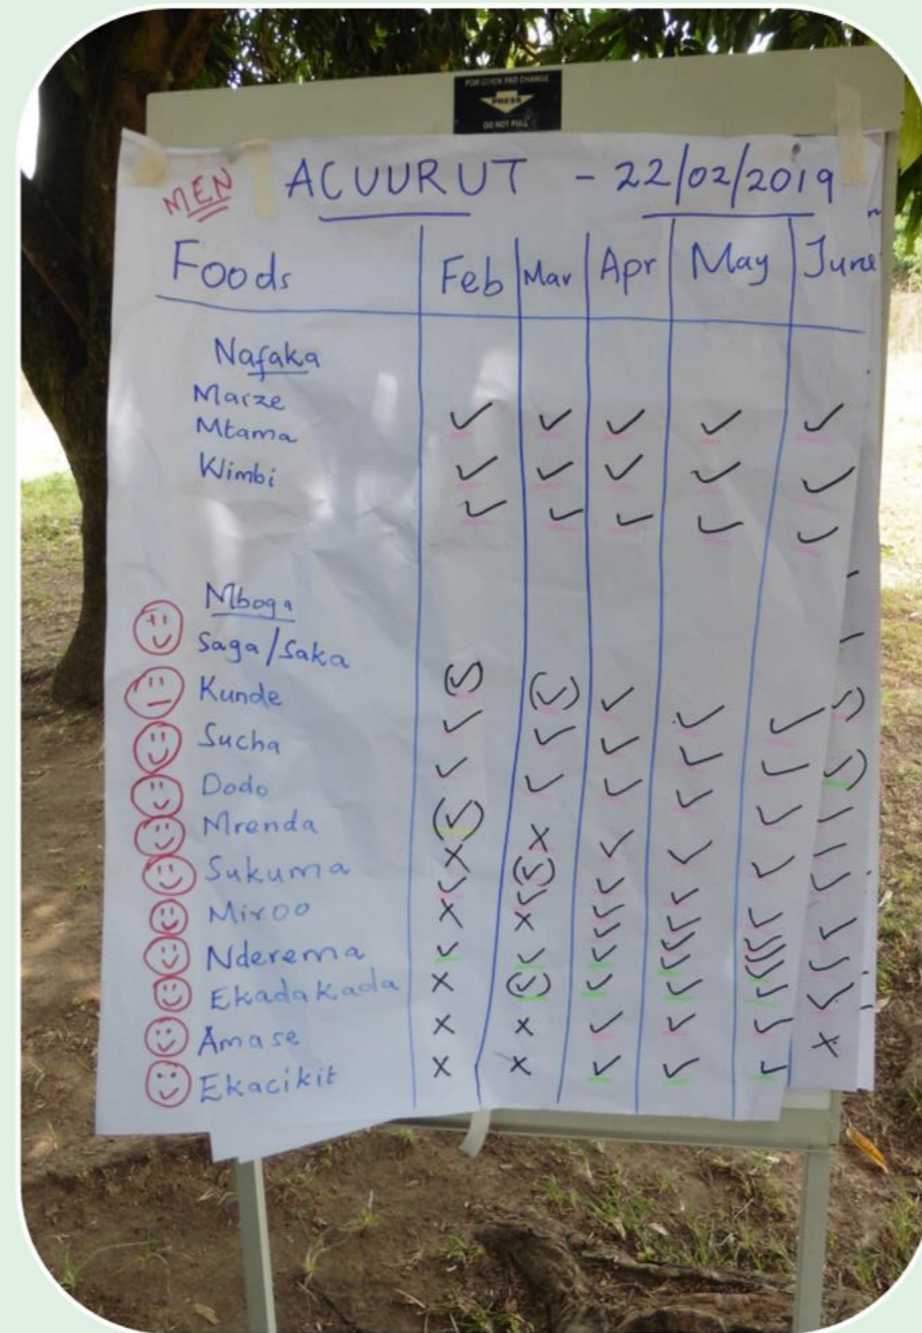 FOR QUICK PAD CHANGE
PRESS
DO NOT PULL
MEN ACUURUT - 22/02/2019
Foods Feb Mar Apr May June
Nafaka
Maize
Mtama ✓ ✓ ✓ ✓ ✓
Wimbi ✓ ✓ ✓ ✓ ✓
✓ ✓ ✓ ✓ ✓
Mboga
Saga/Saka
Kunde ✓ ✓ ✓ ✓ ✓
Sucha ✓ ✓ ✓ ✓ ✓
Dodo ✓ ✓ ✓ ✓ ✓
Mrenda ✓ x ✓ ✓ ✓
Sukuma x ✓ ✓ ✓ ✓
Miroo x x ✓ ✓ ✓
Nderema ✓ ✓ ✓ ✓ ✓
Ekadakada x ✓ ✓ ✓ ✓
Amase x x ✓ ✓ ✓
Ekacikit x x ✓ ✓ ✓